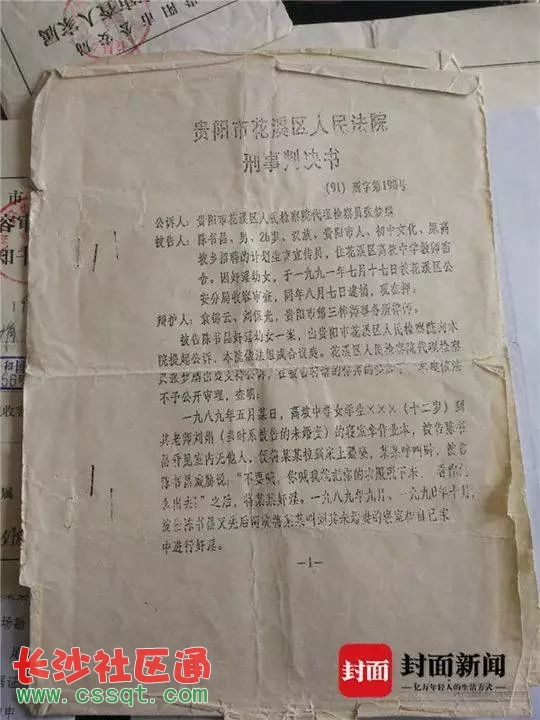 贵阳市花溪区人民法院
刑事判决书
(91)刑字第198号
公诉人：贵阳市花溪区人民检察院代理检察员张梦
被告人：陈书昌、男、26岁、汉族、贵阳市人、初中文化、原高
坡乡招聘的计划生育宣传员，住花溪区高坡中学教师宿
舍。因奸淫幼女，于一九九一年七月十七日被花溪区公
安分局收容审查，同年八月七日逮捕，现在押。
辩护人：袁锦云、刘保光，贵阳市第三律师事务所律师。
被告陈书昌奸淫幼女一案，由贵阳市花溪区人民检察院向本
院提起公诉，本院依法组成合议庭。花溪区人民检察院代理检察
员张梦出庭支持公诉，
不予公开审理，查明：
一九八九年五月某日，高坡中学女学生×××（十二岁）到
其老师刘娟（当时系被告的未婚妻）的寝室拿作业本，被告陈书
昌看见室内无他人，便将某某拉到床上，某某呼叫时，被告
陈书昌威胁说："不要喊，
么出去！"之后，将某某奸淫。一九八九年九月、一九九〇年十月，
被告陈书昌又先后两次将某某叫到其未婚妻的寝室和自己家
中进行奸淫。
—1—
长沙社区通
www.cssqt.com
封面
封面新闻
亿万年轻人的生活方式